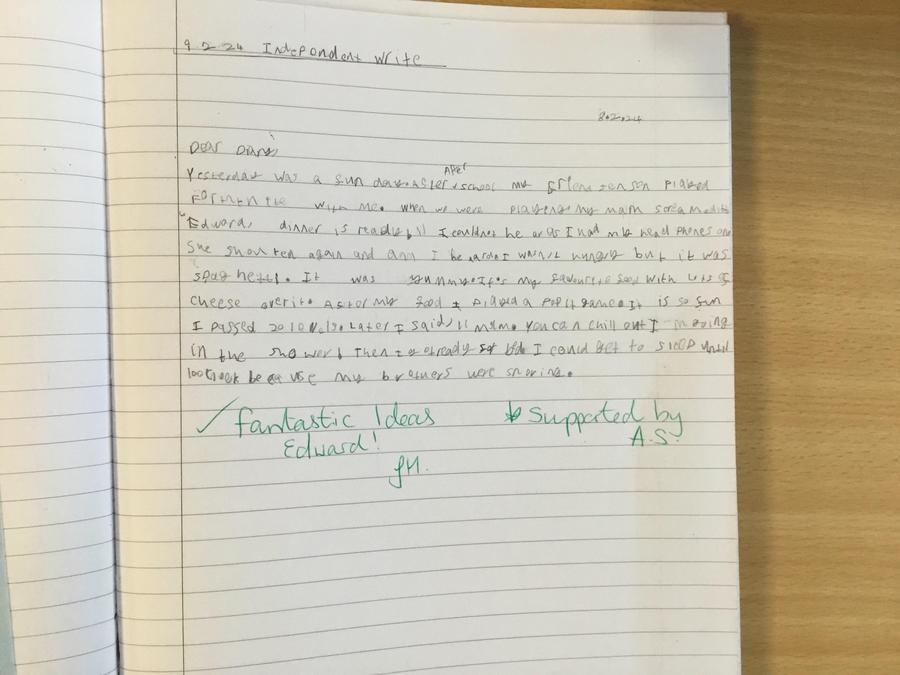 9 2 24 Independent Write
8.2.24
Dear Diary,
After
Yesterday was a fun day. school my friend Jenson played
with me. when we were playing my mum screamed
"Edward, dinner is ready!" I couldnt he ar as I had my head phones on.
She again and I I wasn't hungry but it was
spag hetti. It was yummy. It's my favourite food with lots of
cheese over it. After my food I played a game. It is so fun
I passed Later I said," mum. you can chill out I m going
in the shower! Then I already bed. I could get to sleep until
be ca use my brothers were snoring.
✓ fantastic Ideas * Supported by
Edward! A.S.
JH.